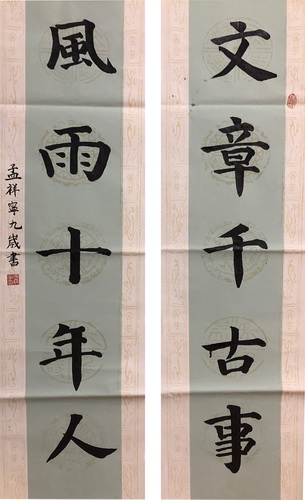 文章千古事
風雨十年人
孟祥寧九歲書